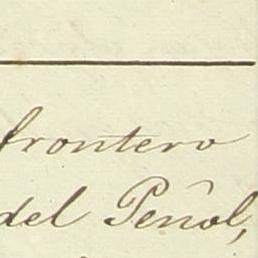 frontero
del Peñol,